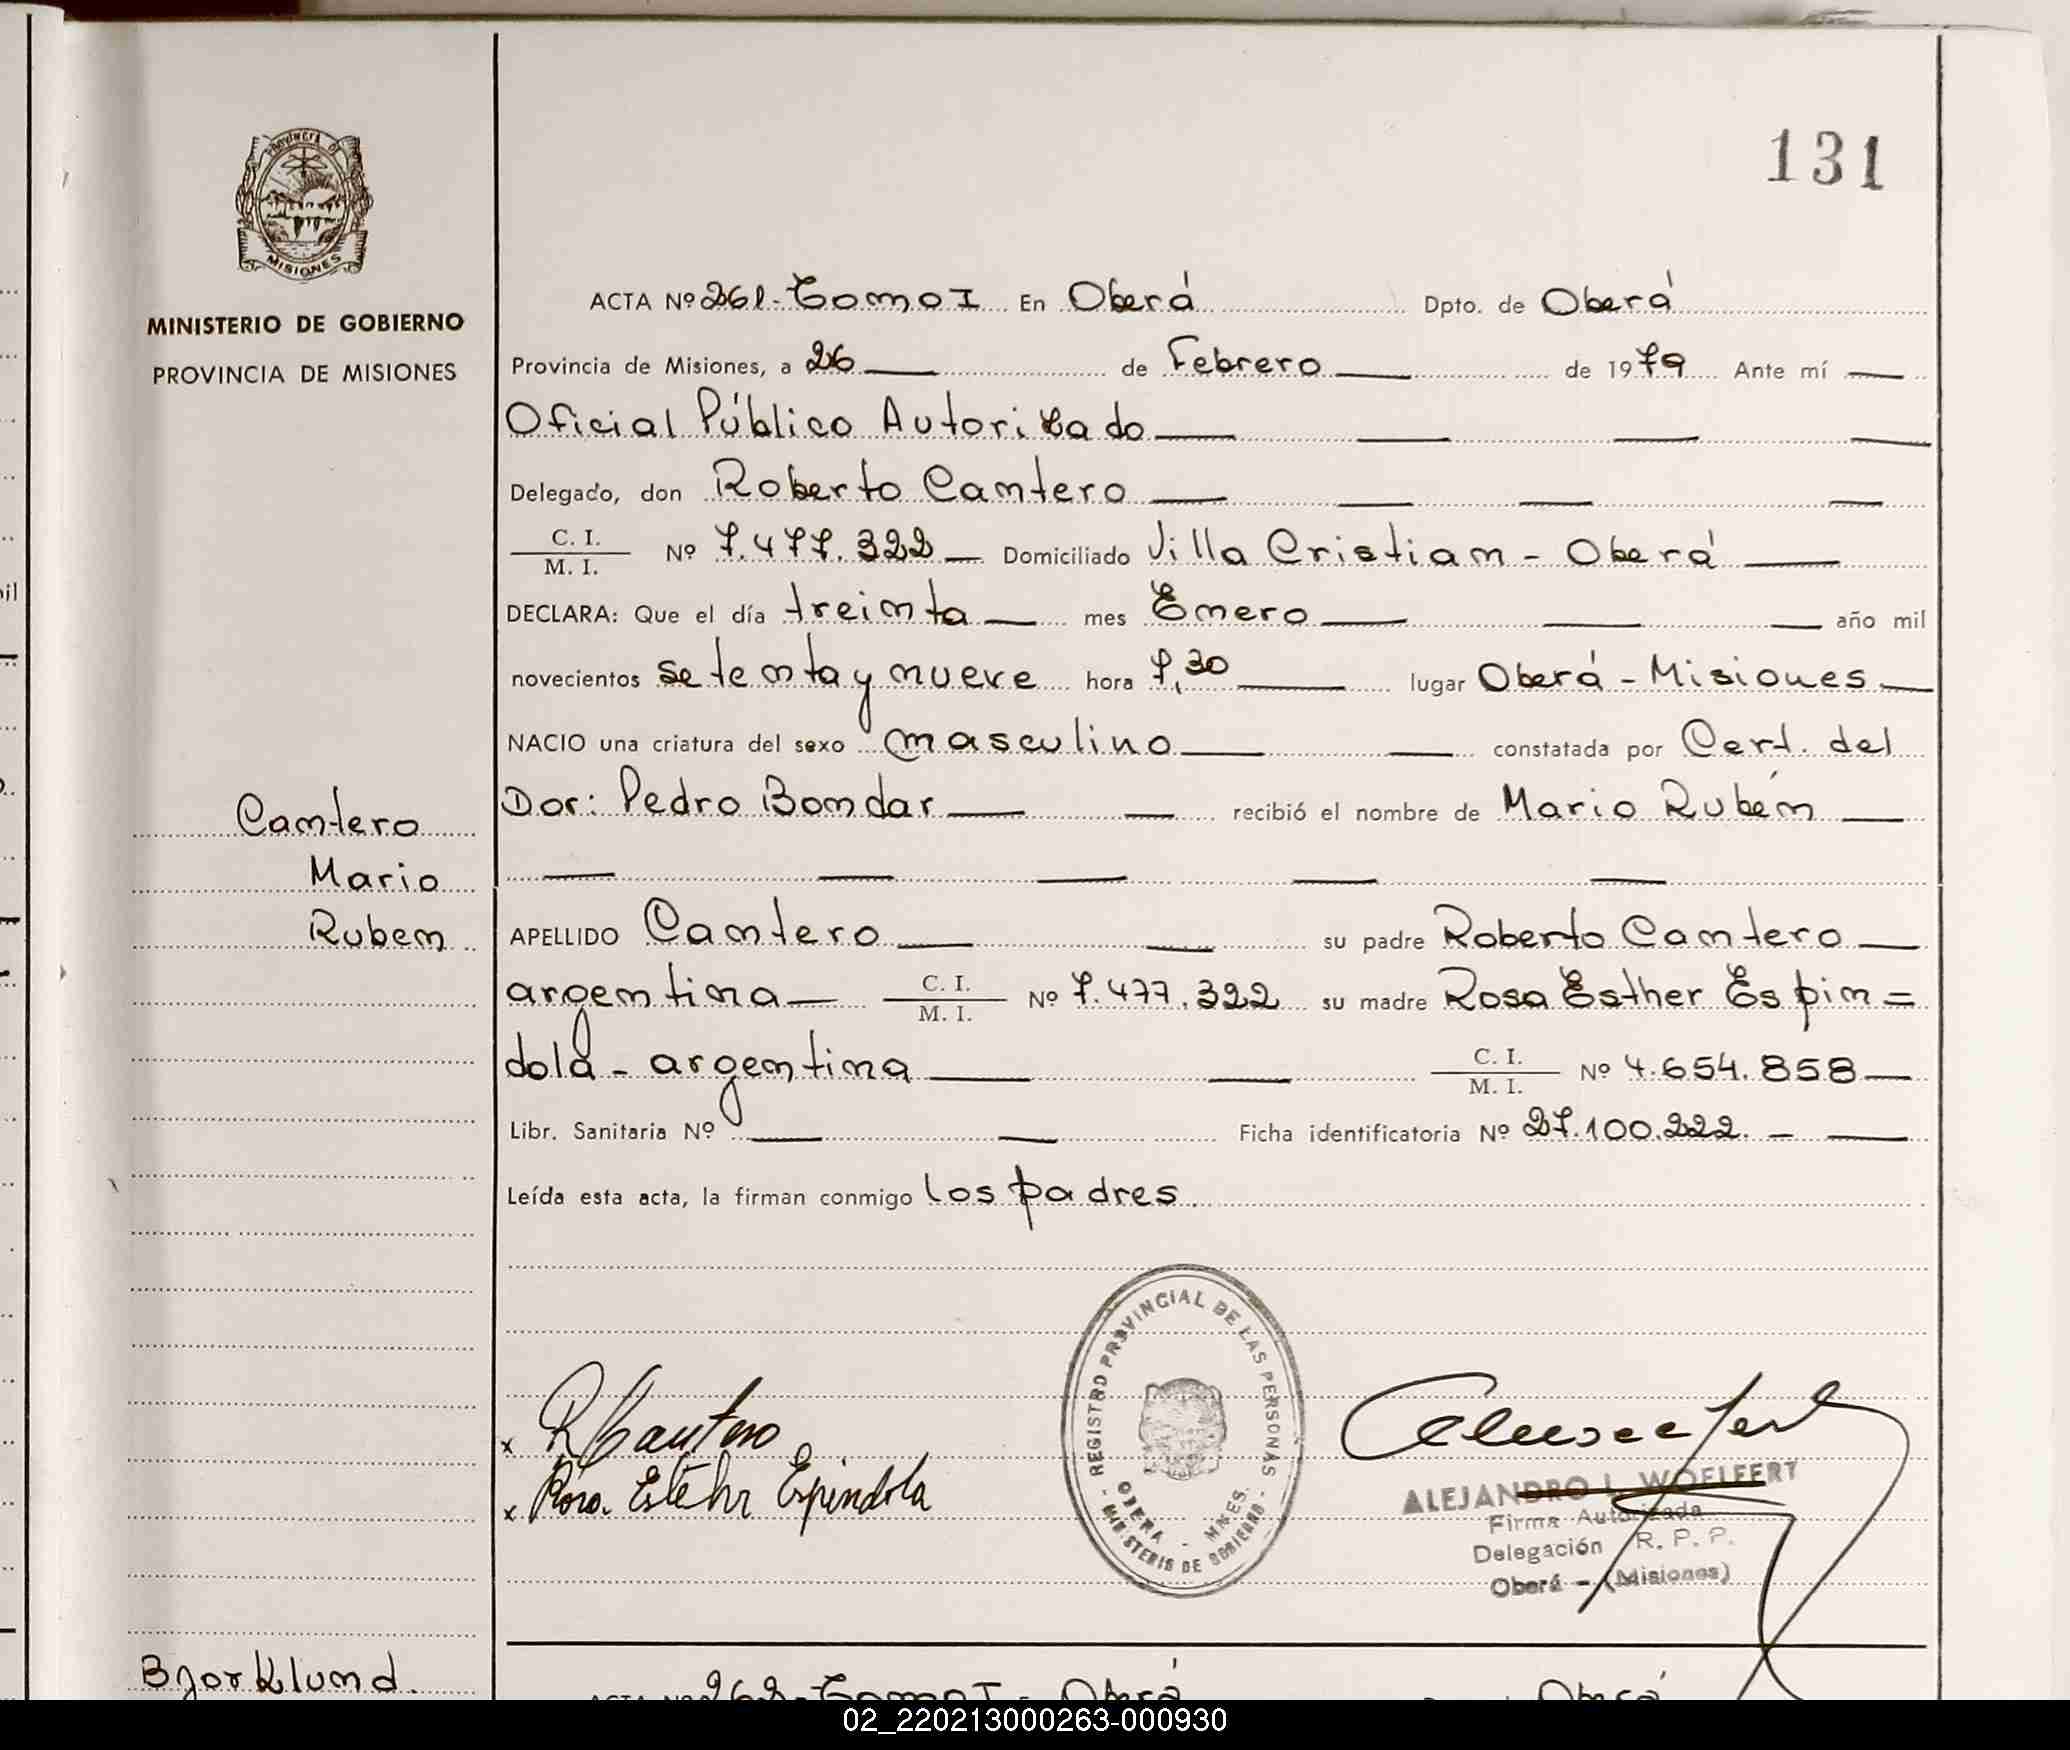 131
MINISTERIO DE GOBIERNO
PROVINCIA DE MISIONES
ACTA Nº 261-Tomo I En Oberá Dpto. de Oberá
Provincia de Misiones, a 26 de Febrero de 1979 Ante mí
Oficial Público Autorizado
Delegado, don Roberto Cantero
C. I.
M. I. Nº 7.477.322 Domiciliado Villa Cristian - Oberá
DECLARA: Que el día treinta mes Enero año mil
novecientos setenta y nueve hora 7,30 lugar Oberá - Misiones
NACIO una criatura del sexo masculino constatada por Cert. del
Dor: Pedro Bondar recibió el nombre de Mario Rubén
Cantero
Mario
Ruben
APELLIDO Cantero su padre Roberto Cantero
argentina C. I.
M. I. Nº 7.477.322 su madre Rosa Esther Espin=
dola - argentina C. I.
M. I. Nº 4.654.858
Libr. Sanitaria Nº Ficha identificatoria Nº 27.100.222. -
Leída esta acta, la firman conmigo los padres.
REGISTRO PROVINCIAL DE LAS PERSONAS
OBERA - MNES.
MINISTERIO DE GOBIERNO
x R Cantero
x Rosa Estehr Espindola
ALEJANDRO L. WOELFERT
Firma Autorizada
Delegación R. P. P.
Oberá - (Misiones)
Bjorklund.
ACTA Nº 262-Tomo I - Oberá Oberá
02_220213000263-000930